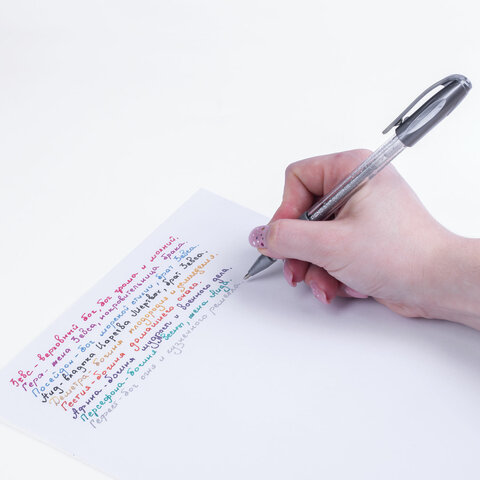 Зевс - верховный бог, бог грома и молний.
Гера - жена Зевса, покровительница брака.
Посейдон - бог морской стихии, брат Зевса.
Аид - владыка Царства Мертвых, брат Зевса.
Деметра - богиня плодородия и земледелия.
Гестия - богиня домашнего очага.
Афина - богиня мудрости и военного дела.
Персефона богиня весны, жена Аида.
Гефест - бог огня и кузнечного ремесла